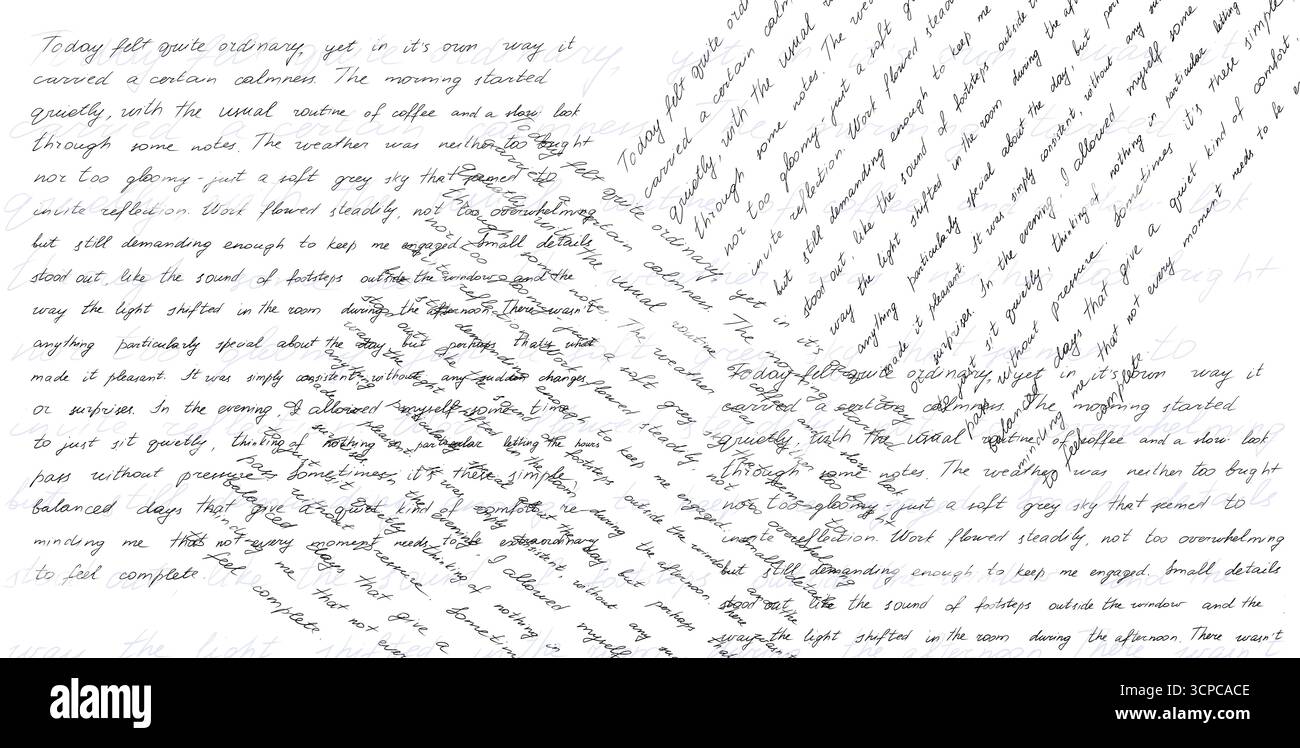 Today felt quite ordinary, yet in it's own way it
carved a certain calmness. The morning started
quietly, with the usual routine of coffee and a slow look
through some notes. The weather was neither too bright
nor too gloomy - just a soft grey sky that seemed to
invite reflection. Work flowed steadily, not too overwhelming
but still demanding enough to keep me engaged. Small details
stood out, like the sound of footsteps outside the window and the
way the light shifted in the room during the afternoon. There wasn't
anything particularly special about the day, but perhaps that's what
made it pleasant. It was simply consistent, without any sudden changes
or surprises. In the evening, I allowed myself some time
to just sit quietly, thinking of nothing in particular letting the hours
pass without pressure. Sometimes it's these simple,
balanced days that give a quiet kind of comfort, re-
minding me that not every moment needs to be extraordinary
to feel complete.
Today felt quite ord
carved a certain calm
quietly, with the usual r
through some notes. The we
nor too gloomy - just a soft g
invite reflection. Work flowed steadi
but still demanding enough to keep me
stood out, like the sound of footsteps outside t
way the light shifted in the room during the af
anything particularly special about the day, but per
made it pleasant. It was simply consistent, without any su
surprises. In the evening, I allowed myself some
to just sit quietly, thinking of nothing in particular letting
pass without pressure. Sometimes it's these simple
balanced days that give a quiet kind of comfort,
minding me that not every moment needs to be e
to feel complete.
felt quite ordinary, yet in it's
certain calmness. The morning
the usual routine
The weather
a soft grey
Work flowed steadily, not too overwhelming
enough to keep me engaged. Small details
footsteps outside the window and the
during the afternoon. There
the day, but perhaps that
consistent, without any su
I allowed myself
thinking of nothing in
pressure. Sometim
balanced days that give a
minding me that not ever
feel complete.
Today felt quite ordinary, yet in it's own way it
carved a certain calmness. The morning started
quietly, with the usual routine of coffee and a slow look
through some notes. The weather was neither too bright
nor too gloomy - just a soft grey sky that seemed to
invite reflection. Work flowed steadily, not too overwhelming
but still demanding enough to keep me engaged. Small details
stood out, like the sound of footsteps outside the window and the
way the light shifted in the room during the afternoon. There wasn't
alamy
Image ID: 3CPCACE
www.alamy.com